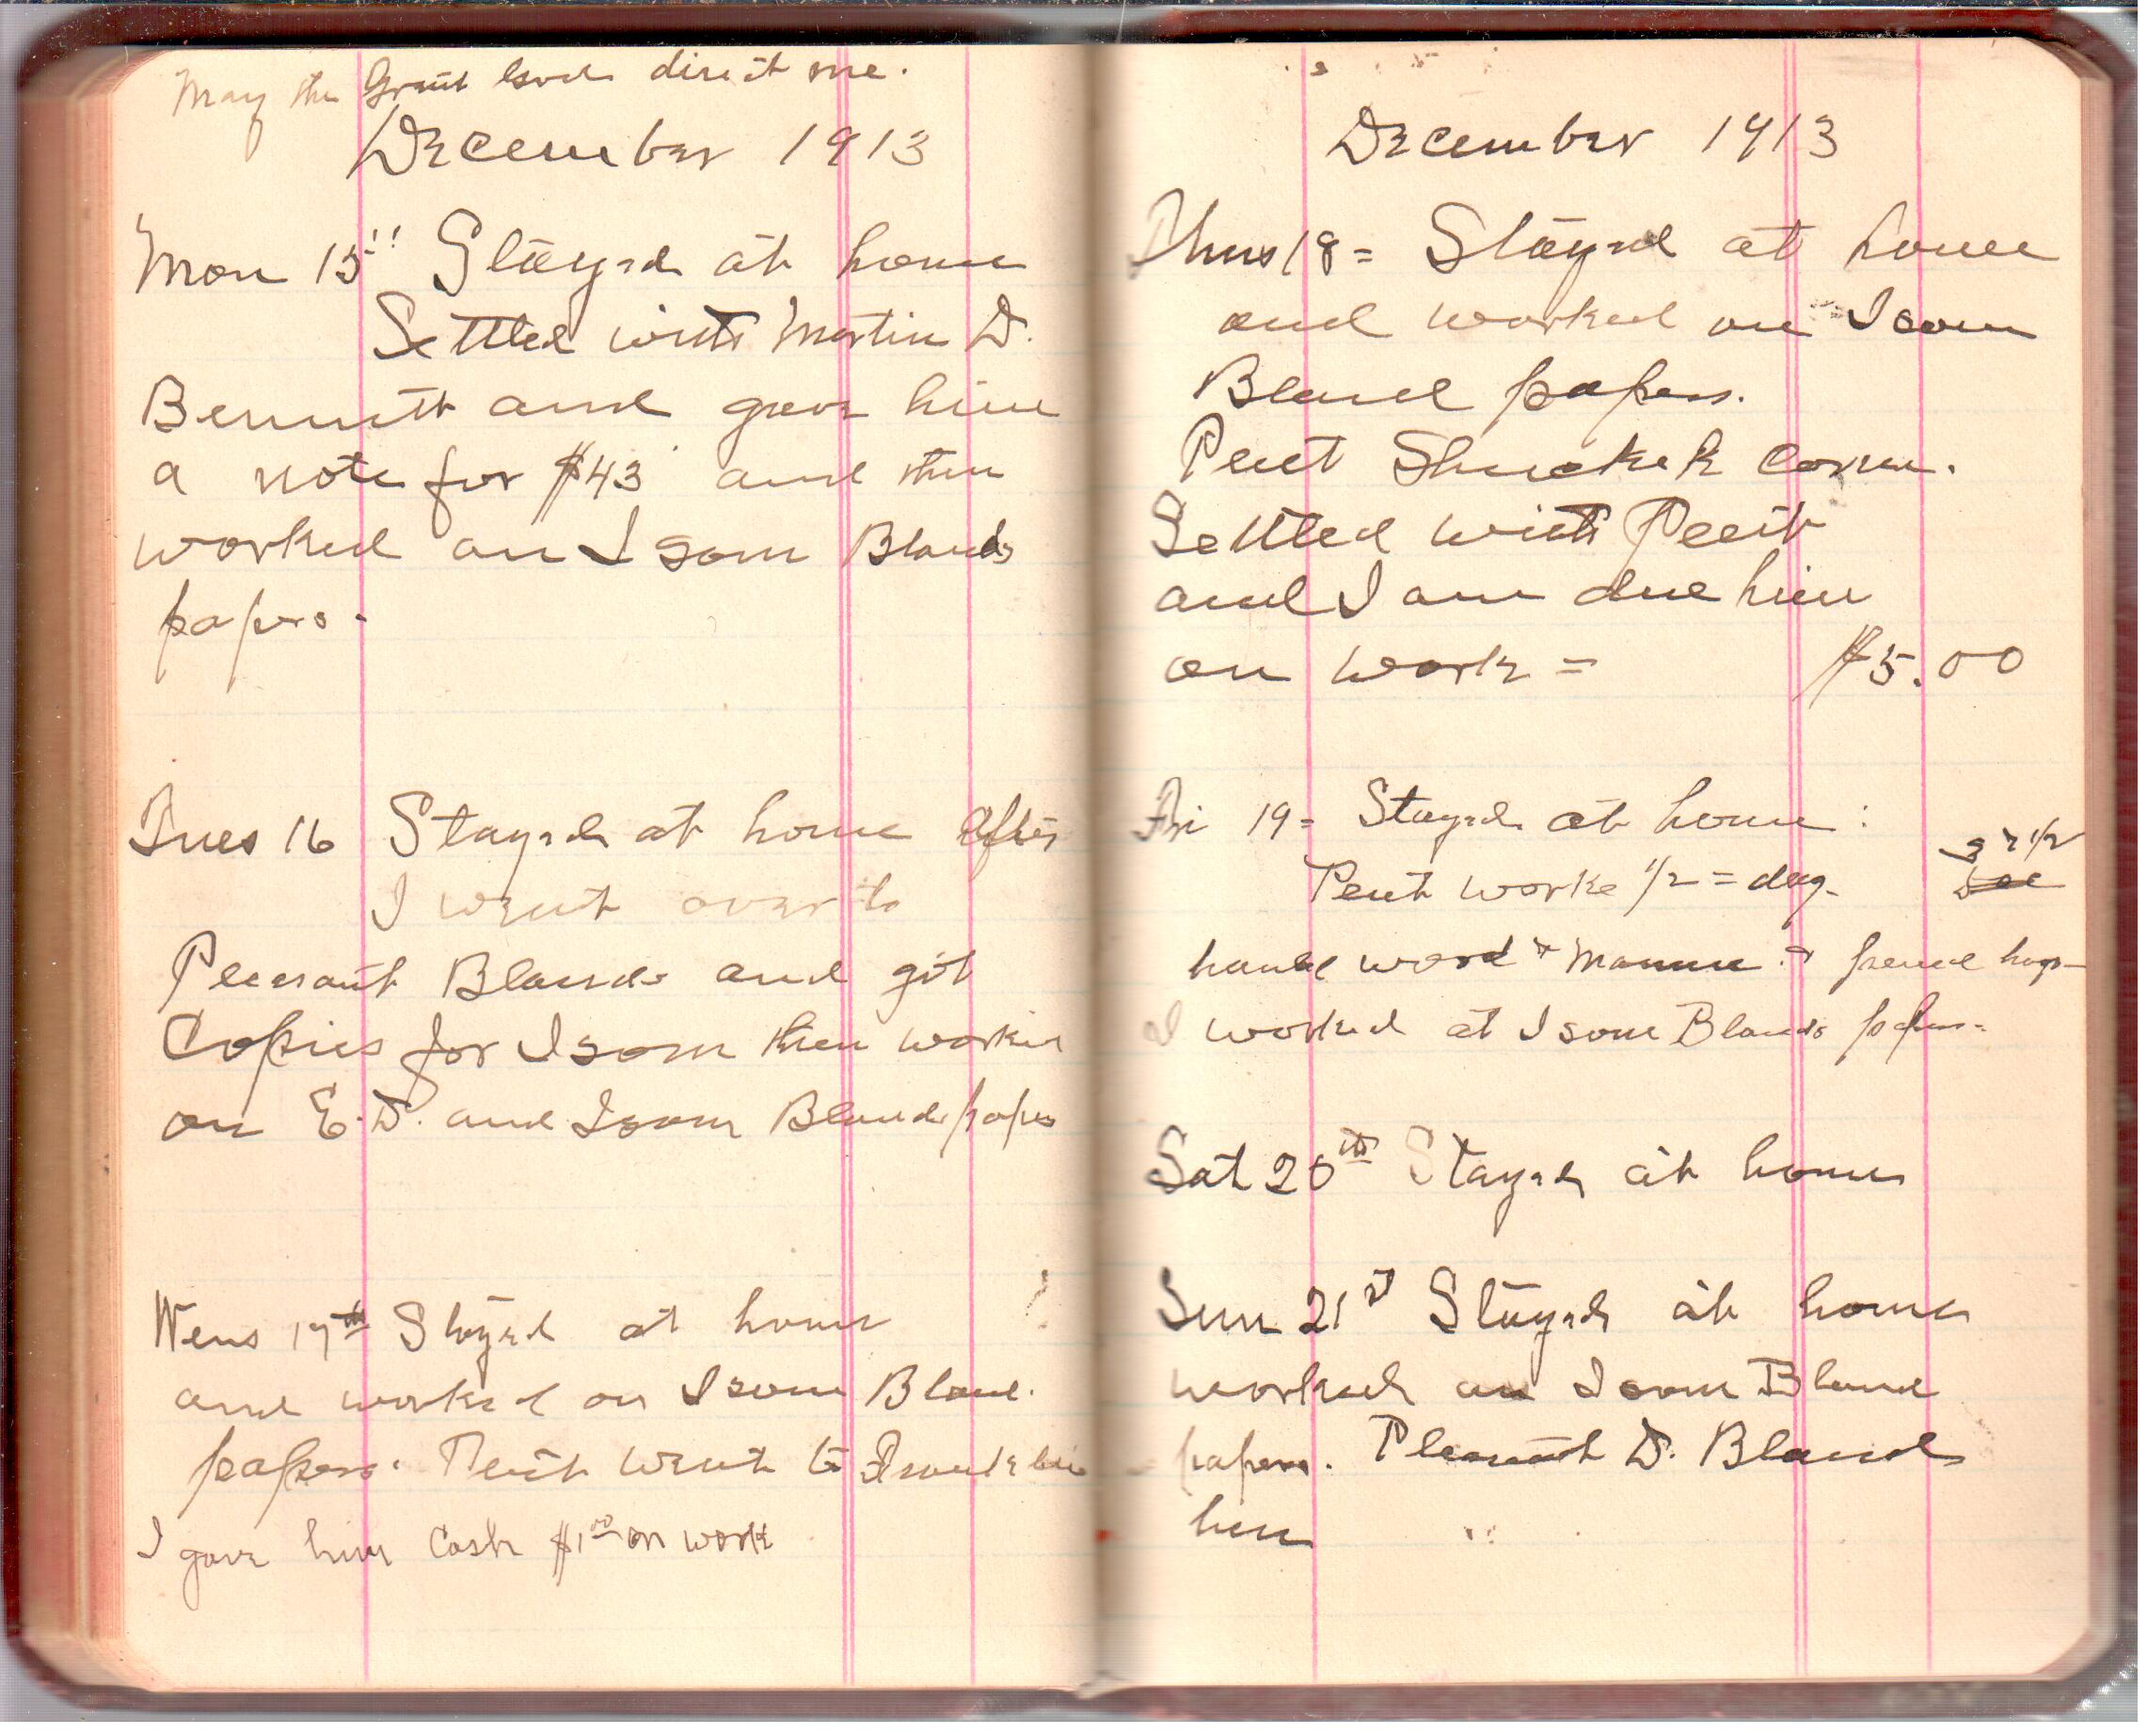 May the Great God direct me.
December 1913
Mon 15" Stayed at home
Settled with Martin D.
Bennett and gave him
a note for $43 and then
worked on Isom Blands
papers.
Tues 16 Stayed at home After
I went over to
Pleasant Blands and got
Copies for Isom then worked
on E. D. and Isom Bland papers
Wens 17th Stayed at home
and worked on Isom Bland.
papers. Peut went to
I gave him Cash $1.00 on work
December 1913
Thus 18 = Stayed at home
and worked on Isom
Bland papers.
Peut Shucked corn.
Settled with Peut
and I am due him
on work = $5.00
Fri 19 = Stayed at home :
Peut worke 1/2 = day. 37 1/2
hauled wood + + pened hogs
I worked at Isom Blands papers.
Sat 20th Stayed at home
Sun 21st Stayed at home
worked on Isom Bland
papers. Pleasant D. Bland
here